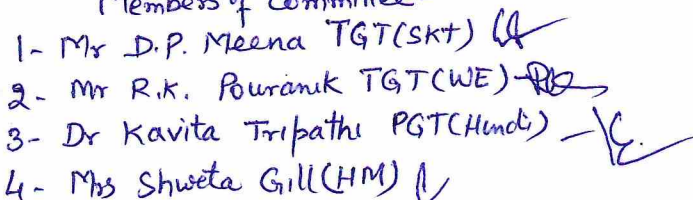 Members of Committee
1- Mr D.P. Meena TGT(Skt)
2- Mr R.K. Pouranik TGT(WE)
3- Dr Kavita Tripathi PGT(Hindi)
4- Mrs Shweta Gill(HM)